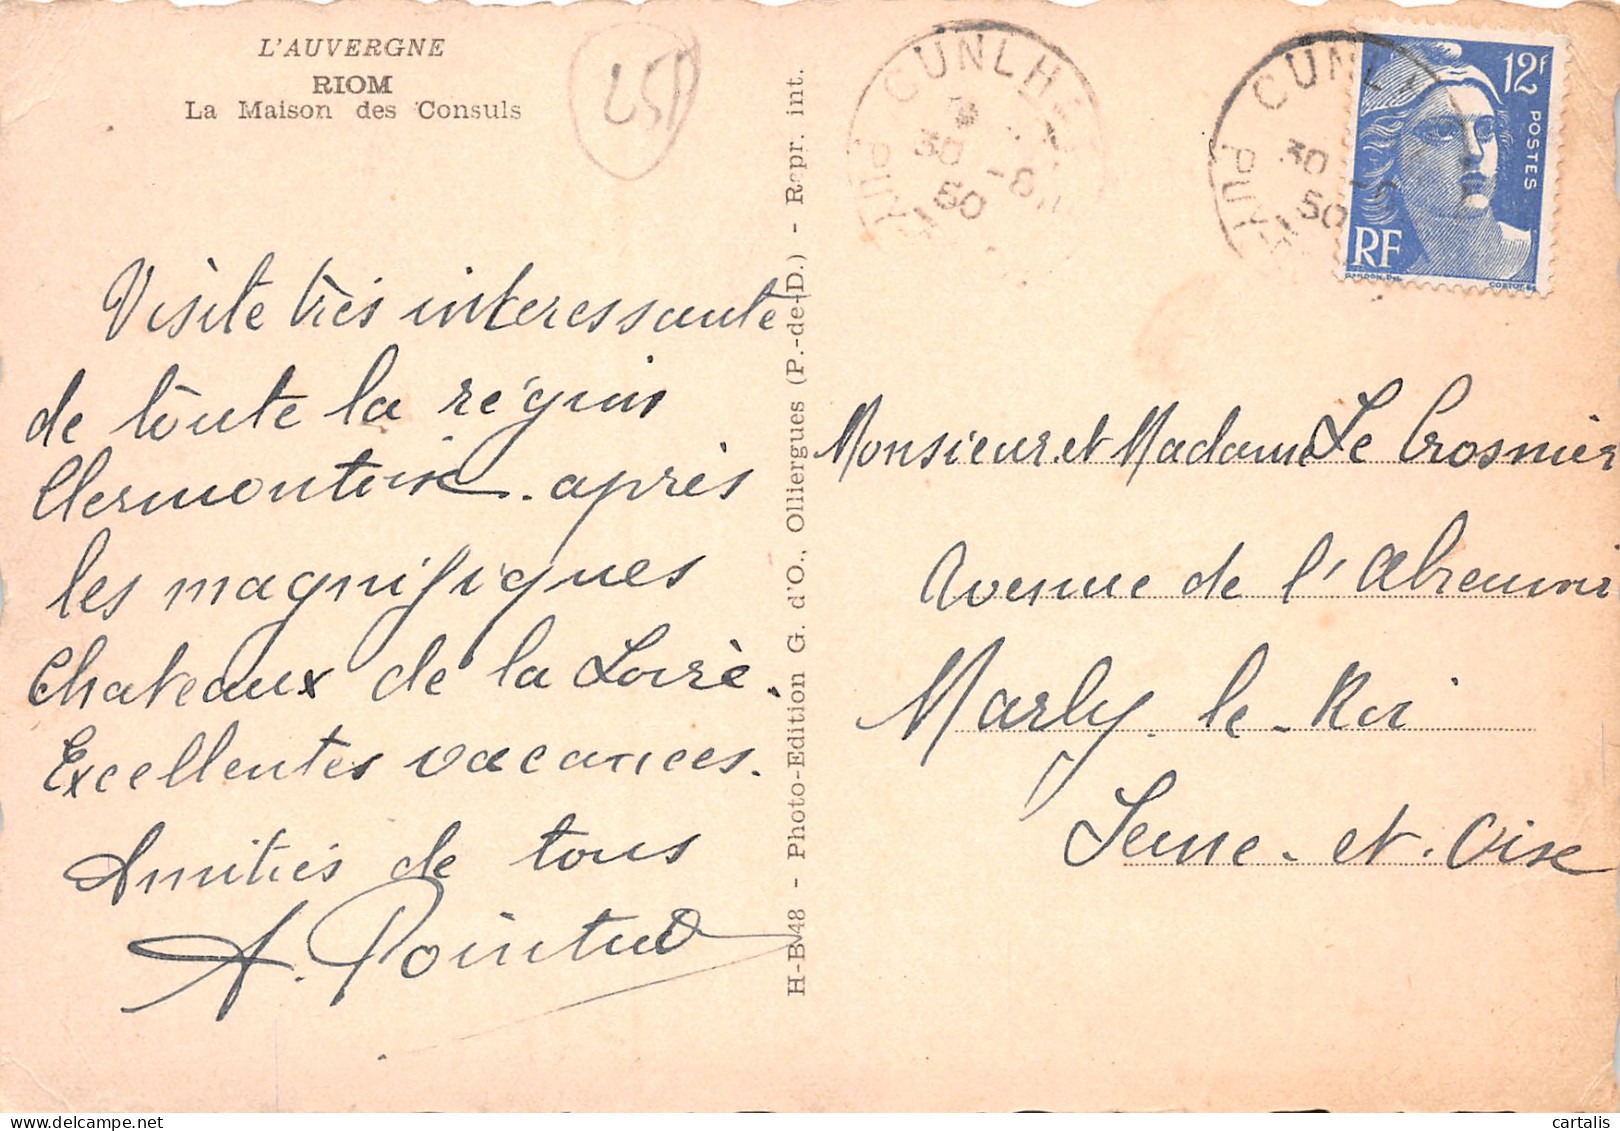 L'AUVERGNE
RIOM
La Maison des Consuls
Visite très interessante
de toute la région
Clermontoise. après
les magnifiques
Chateaux de la Loire.
Excellentes vacances.
Amitiés de tous
A. Pointud
H-B-48 - Photo-Edition G. d'O., Olliergues (P.-de-D.) - Repr. int.
CUNLHAT
30 -8
50
PUY
CUNL
30 -8
50
PUY
12F
POSTES
RF
GANDON, DEL.
CORTOT SC
Monsieur et Madame Le Crosnier
Avenue de l'Abreuvoir
Marly-le-Roi
Seine-et-Oise
cartalis